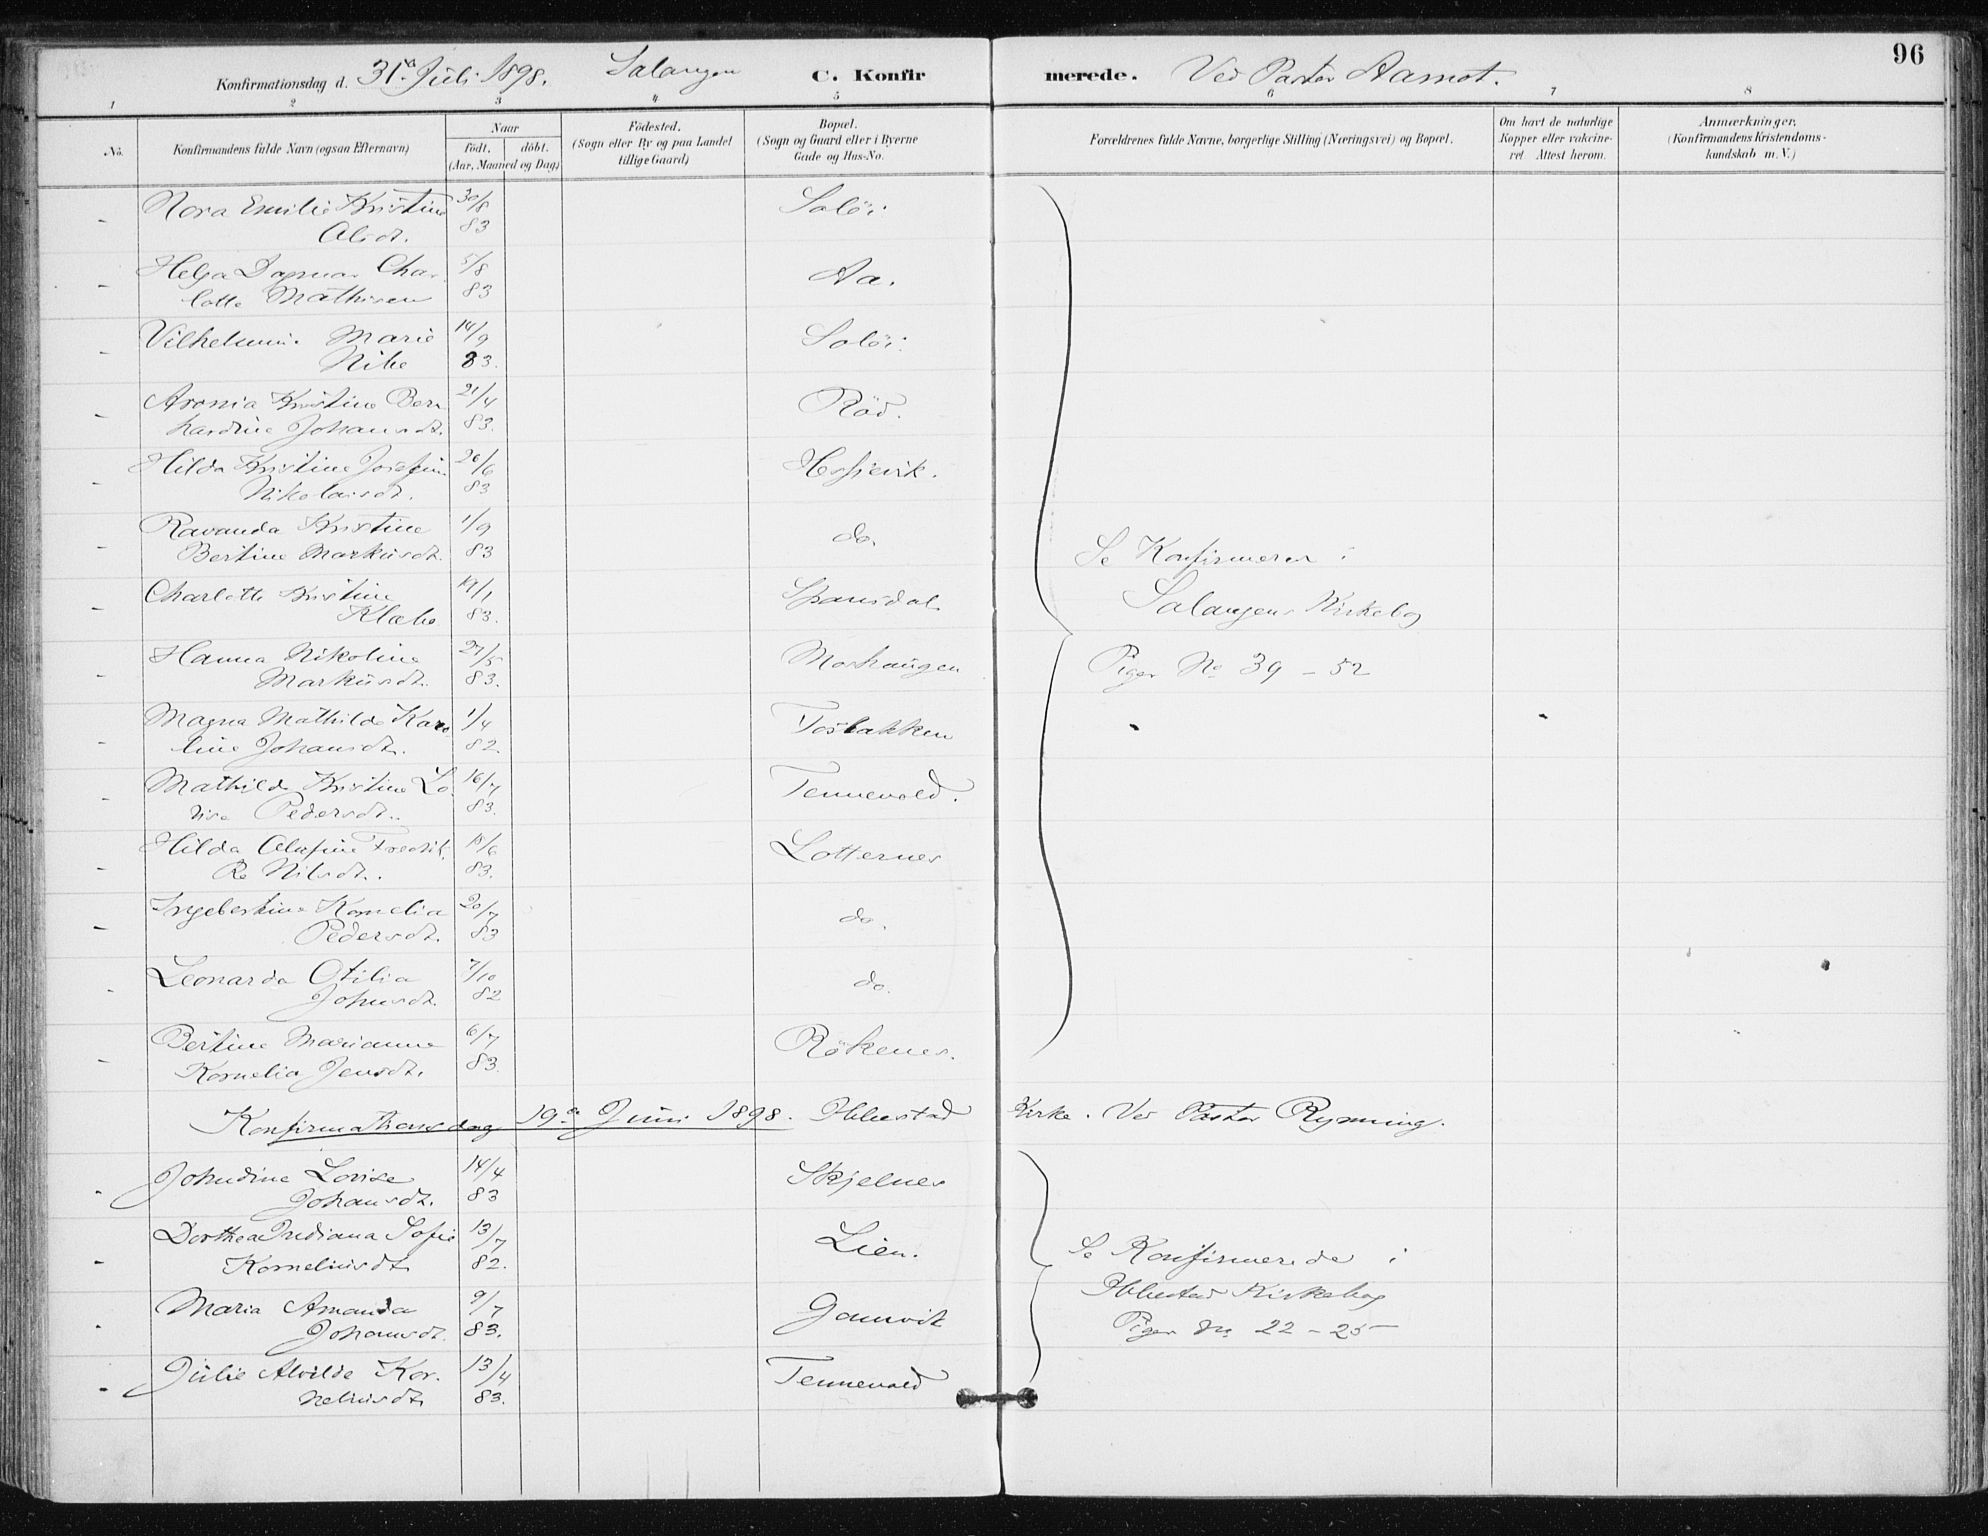 96
Konfirmationsdag d. 31te Juli 1898. Salangen C. Konfirmerede. Ved Pastor Aamot.
1 2 3 4 5 6 7 8
No.
Konfirmandens fulde Navn (ogsaa Efternavn)
Naar
födt. döbt.
(Aar, Maaned og Dag)
Födested.
(Sogn eller By og paa Landet
tillige Gaard)
Bopæl.
(Sogn og Gaard eller i Byerne
Gade og Hus-No.
Forældrenes fulde Navne, borgerlige Stilling (Næringsvei) og Bopæl.
Om havt de naturlige
Kopper eller vakcine-
ret. Attest herom.
Anmærkninger.
(Konfirmandens Kristendoms-
kundskab m. V.)
- Nora Emilie Kristine 30/8 Salöi
Olsdt. 83
- Helga Dagmar Char 5/8 Aa.
lotte Mathisen 83
- Vilhelmine Marie 14/9 Salöi
83.
- Aronia Kristine Bern 21/4 Röd.
hardine Johansdt. 83.
- Hilda Kristine Josefine 26/6
Nikolaisdt. 83
- Ravanda Kristine 1/9 do.
Bertine Markusdt. 83
- Charlotte Kristine Spansdal
Klæbo 83.
- Hanna Nikoline 27/5 Moshaugen
Markusdt. 83.
- Magna Mathilde Karo 1/4
line Johansdt. 82.
- Mathilde Kristine Lo 16/7 Tennevold.
vise Pedersdt. 83.
- Hilda Olufine Fredrik Lotternes
ke Nilsdt. 83.
- Ingebertine Kornelia 20/7 do.
Pedersdt. 83
- Leonarda Otilia 7/10 do.
Johnsdt. 82
- Bertine Marianne 6/7 Rökenes.
Kornelia Jensdt. 83.
Se Konfirmerede i
Salangens Kirkebog
Piger No 39 - 52
Konfirmationsdag 19de Juni 1898. Ibbestad Kirke. Ved Pastor Rynning.
- Johndine Lovise 14/4 Skjelnes
Johansdt. 83
- Dorthea Indiana Sofie 13/7 Lien.
Korneliusdt 82.
- Maria Amanda 9/7 Gamvik
Johansdt. 83.
- Julie Alvilde Kor. 13/4 Tennevold
neliusdt. 83.
Se Konfirmerede i
Ibbestad Kirkebog
Piger No 22 - 25